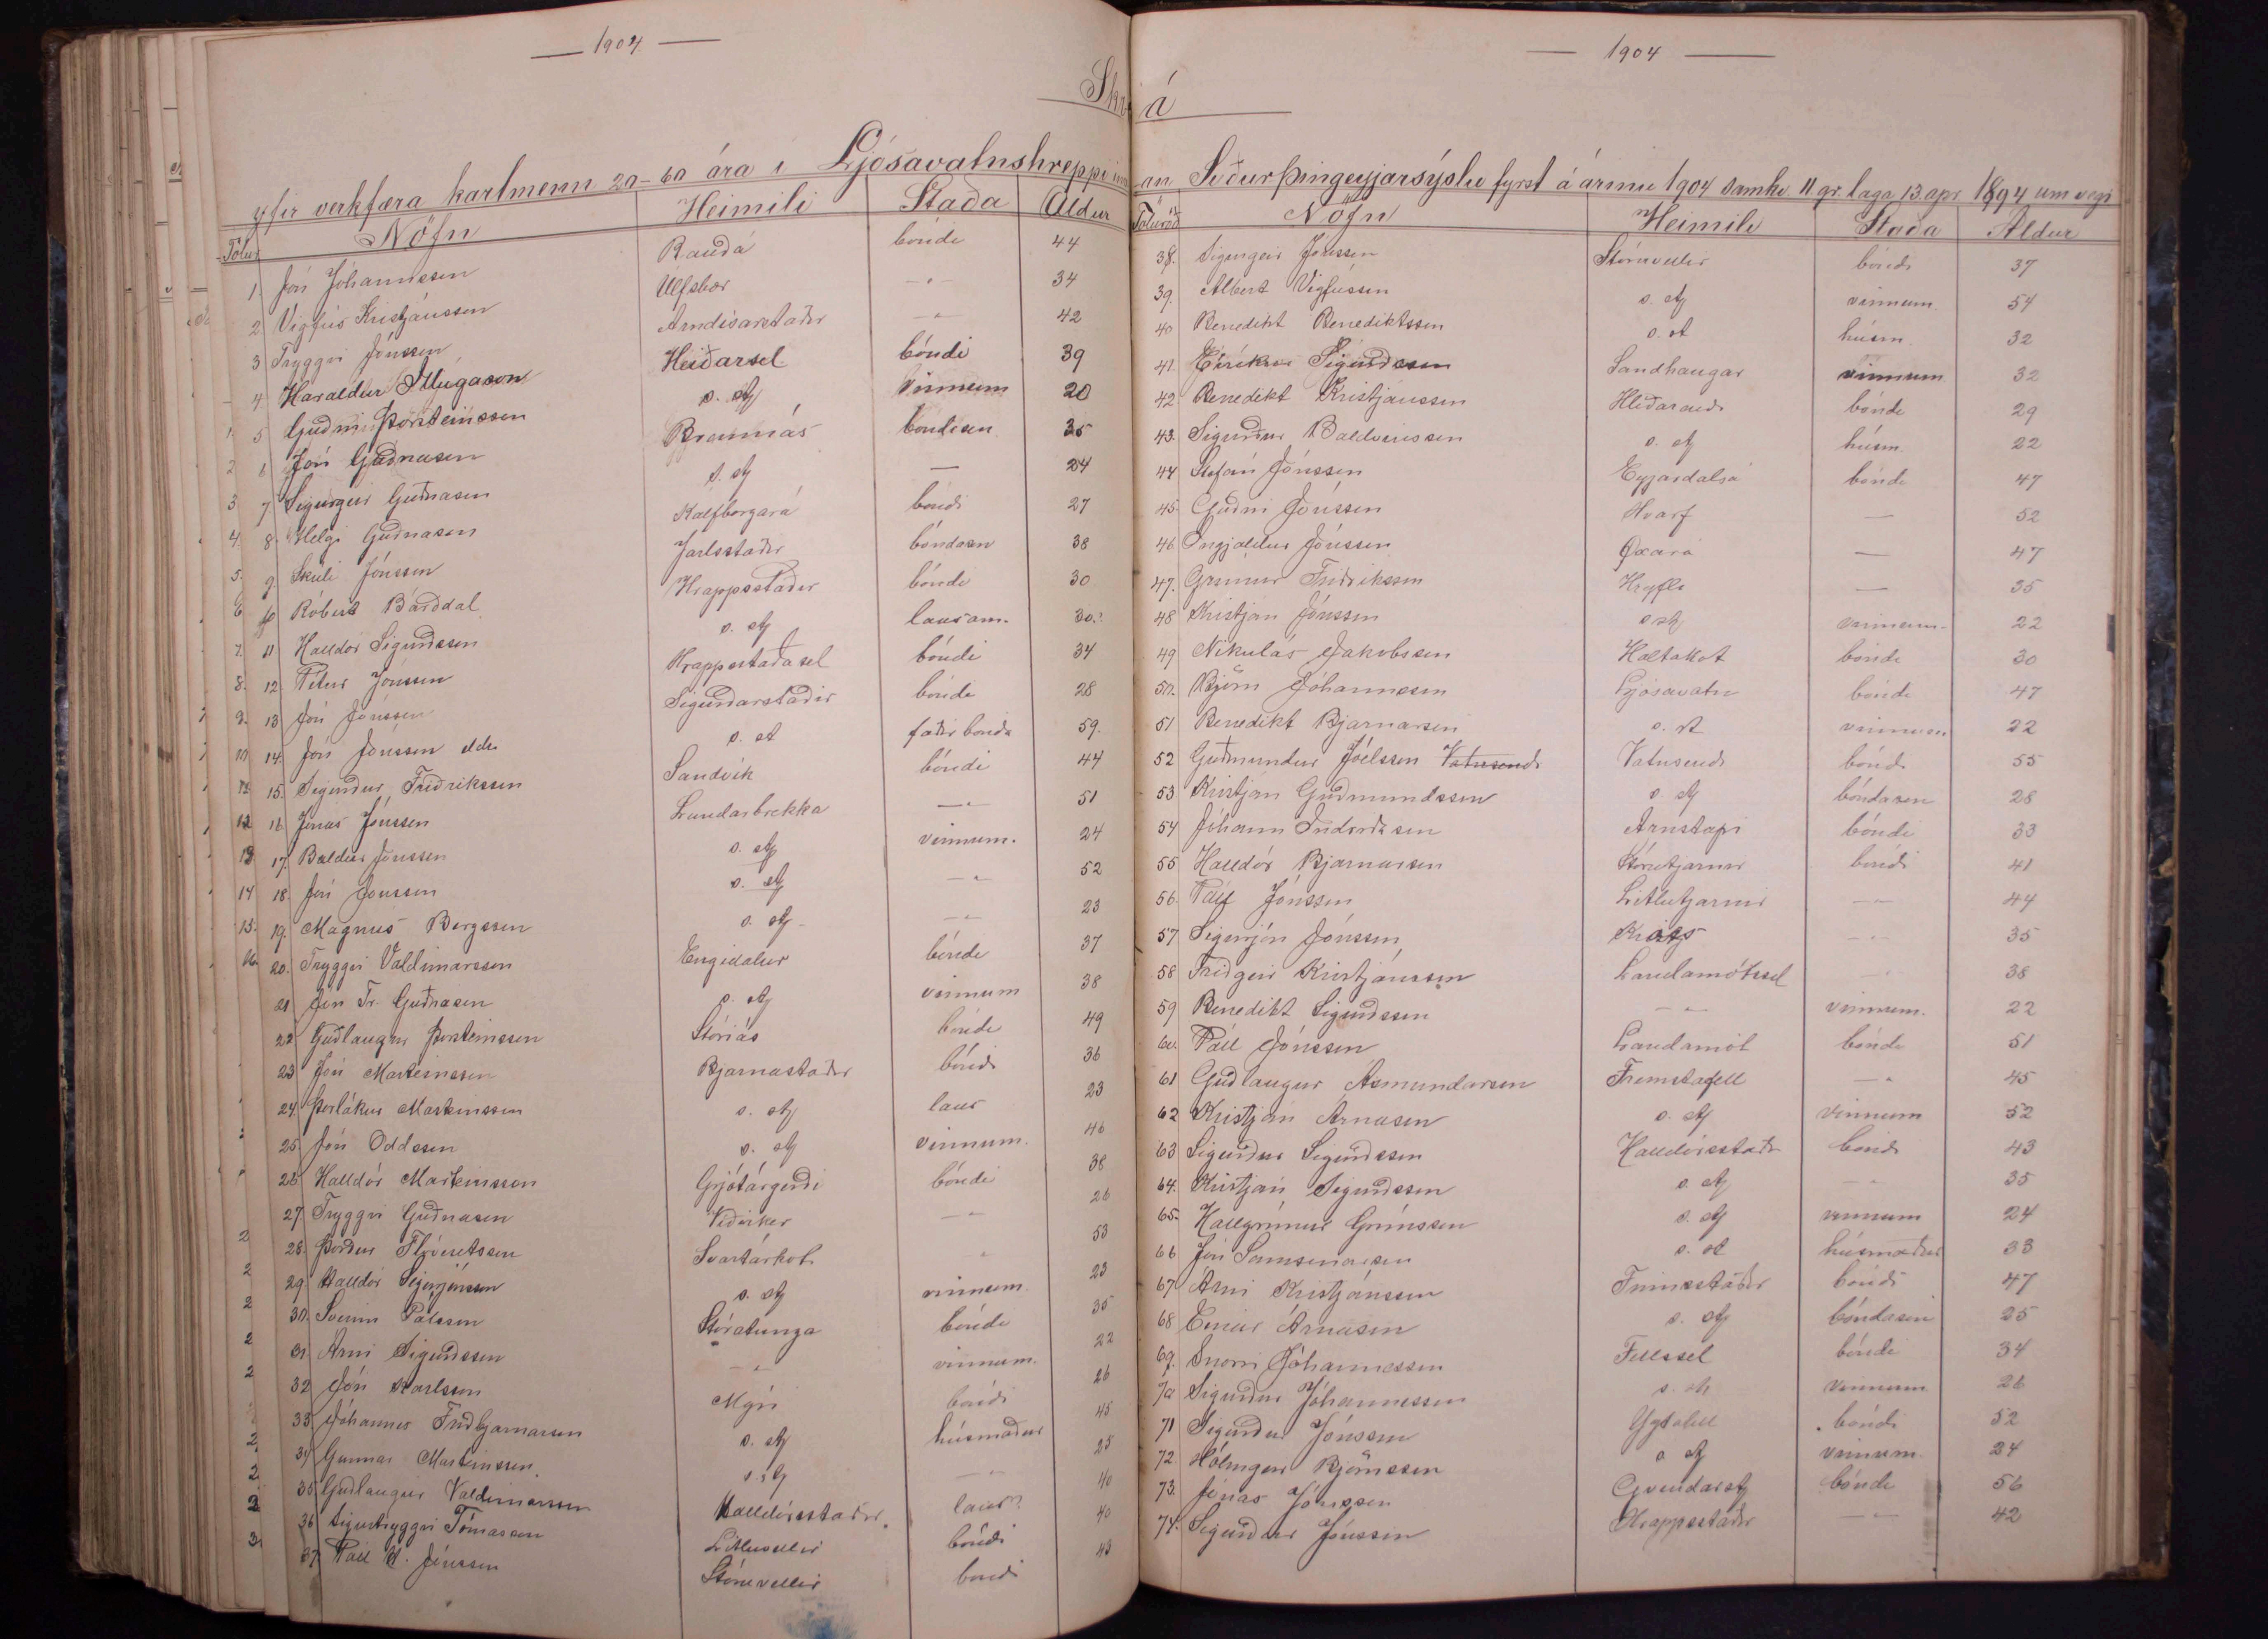 1904
Skrá
yfir verkfæra karlmenn 20-60 ára í Ljósavatnshreppi inn-
Tölur Nöfn Heimili Staða Aldur
1. Jón Jóhannesson Rauðá bóndi 44
2 Vigfús Kristjánsson Úlfsbær -"- 34
3 Tryggvi Jónsson Arndísarstaðir -"- 42
4 Haraldur Illugason Heiðarsel bóndi 39
1. 5 Guðni Þorsteinsson s. st vinnum 20
2 6 Jón Guðnason Brunnás bóndason 35
3 7 Sigurgeir Guðnason s. st — 24
4. 8. Helgi Guðnason Kalfborgará bóndi 27
5. 9. Skúli Jónsson Jarlsstaðir bóndason 38
6 10 Róbert Bárðdal Hrappsstaðir bóndi 30
7. 11 Halldór Sigurðsson s. st lausam. 30.?
8. 12. Pétur Jónsson Hrappsstaðasel bóndi 34
9. 13 Jón Jónsson Sigurðarstaðir bóndi 28
10 14. Jón Jónsson eldri s. st faðir bónda 59.
15. Sigurður Friðriksson Sandvík bóndi 44
12 16 Jónas Jónsson Lundarbrekka -"- 51
13 17. Baldur Jónsson s. st vinnum. 24
14 18. Jón Jónsson s. st -"- 52
15. 19. Magnús Bergsson s. st. -"- 23
16. 20. Tryggvi Valdimarsson Engidalur bóndi 37
21 Jón Tr. Guðnason s. st vinnum 38
22 Guðlaugur Þorsteinsson Stóriás bóndi 49
23 Jón Marteinsson Bjarnastaðir bóndi 36
24. Þorlákur Marteinsson s. st laus 23
25. Jón Oddsson s. st vinnum. 46
26 Halldór Marteinsson Grjótárgerði bóndi 38
27. Tryggvi Guðnason Víðirker -"- 26
28. Þórður Flóventsson Svartárkot -"- 53
29 Halldór Sigurjónsson s. st vinnum. 23
30. Sveinn Pálsson Stóratunga bóndi 35
31. Árni Sigurðsson -"- vinnum. 22
32 Jón Karlsson Mýri bóndi 26
33 Jóhannes Friðbjarnarson s. st húsmaður 45
34 Gunnar Marteinsson s. st -"- 25
35 Guðlaugur Valdimarsson Halldórsstaðir laus? 40
36 Sigurtryggvi Tómasson Litluvellir bóndi 40
37. Páll H. Jónsson Stóruvellir bóndi 43
1904
an Suðurþingeyjarsýslu fyrst á árinu 1904 samkv 11 gr. laga 13. apr 1894 um vegi
Töluröð Nöfn Heimili Staða Aldur
38. Sigurgeir Jónsson Stóruvellir bóndi 37
39. Albert Vigfússon s. st vinnum 54
40 Benedikt Benediktsson s. st húsm. 32
41. Eiríkur Sigurðsson Sandhaugar vinnum 32
42 Benedikt Kristjánsson Hlíðarendi bóndi 29
43. Sigurður Baldvinsson s. st húsm. 22
44 Stefán Jónsson Eyjardalsá bóndi 47
45. Guðni Jónsson Hvarf — 52
46 Ingjaldur Jónsson Öxará — 47
47. Grímur Friðriksson Hriflu — 35
48 Kristján Jónsson s st vinnum- 22
49 Nikulás Jakobsson Holtakot bóndi 30
50. Björn Jóhannesson Ljósavatn bóndi 47
51 Benedikt Bjarnarson s. st vinnum 22
52 Guðmundur Jóelsson Vatnsendi Vatnsendi bóndi 55
53. Kristján Guðmundsson s. st bóndason 28
54 Jóhann Indriðason Arnstapi bóndi 33
55 Halldór Bjarnarson Stórutjarnir bóndi 41
56. Páll Jónsson Litlutjarnir -"- 44
57 Sigurjón Jónsson -"- 35
58 Friðgeir Kristjánsson Landamótssel -"- 38
59 Benedikt Sigurðsson -"- vinnum. 22
60. Páll Jónsson Landamót bóndi 51
61 Guðlaugur Ásmundarson Fremstafell -"- 45
62 Kristján Árnason s. st vinnum 52
63 Sigurður Sigurðsson Halldórsstaðir bóndi 43
64. Kristján Sigurðsson s. st -"- 35
65. Hallgrímur Grímsson s. st vinnum 24
66 Jón Samsonarson s. st húsmaður 33
67 Árni Kristjánsson Finnsstaðir bóndi 47
68 Einar Árnason s. st bóndason 25
69. Snorri Jóhannesson Fellssel bóndi 34
70 Sigurður Jóhannesson s. st vinnum 26
71 Sigurður Jónsson Yztafell bóndi 52
72. Hólmgeir Björnsson s st vinnum. 24
73. Jónas Jónsson Gvendarst bóndi 56
74. Sigurður Jónsson Hrappsstaðir -"- 42